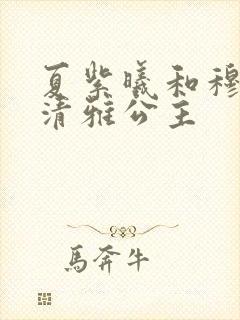 夏紫曦和穆
清雅公主
馬奔牛